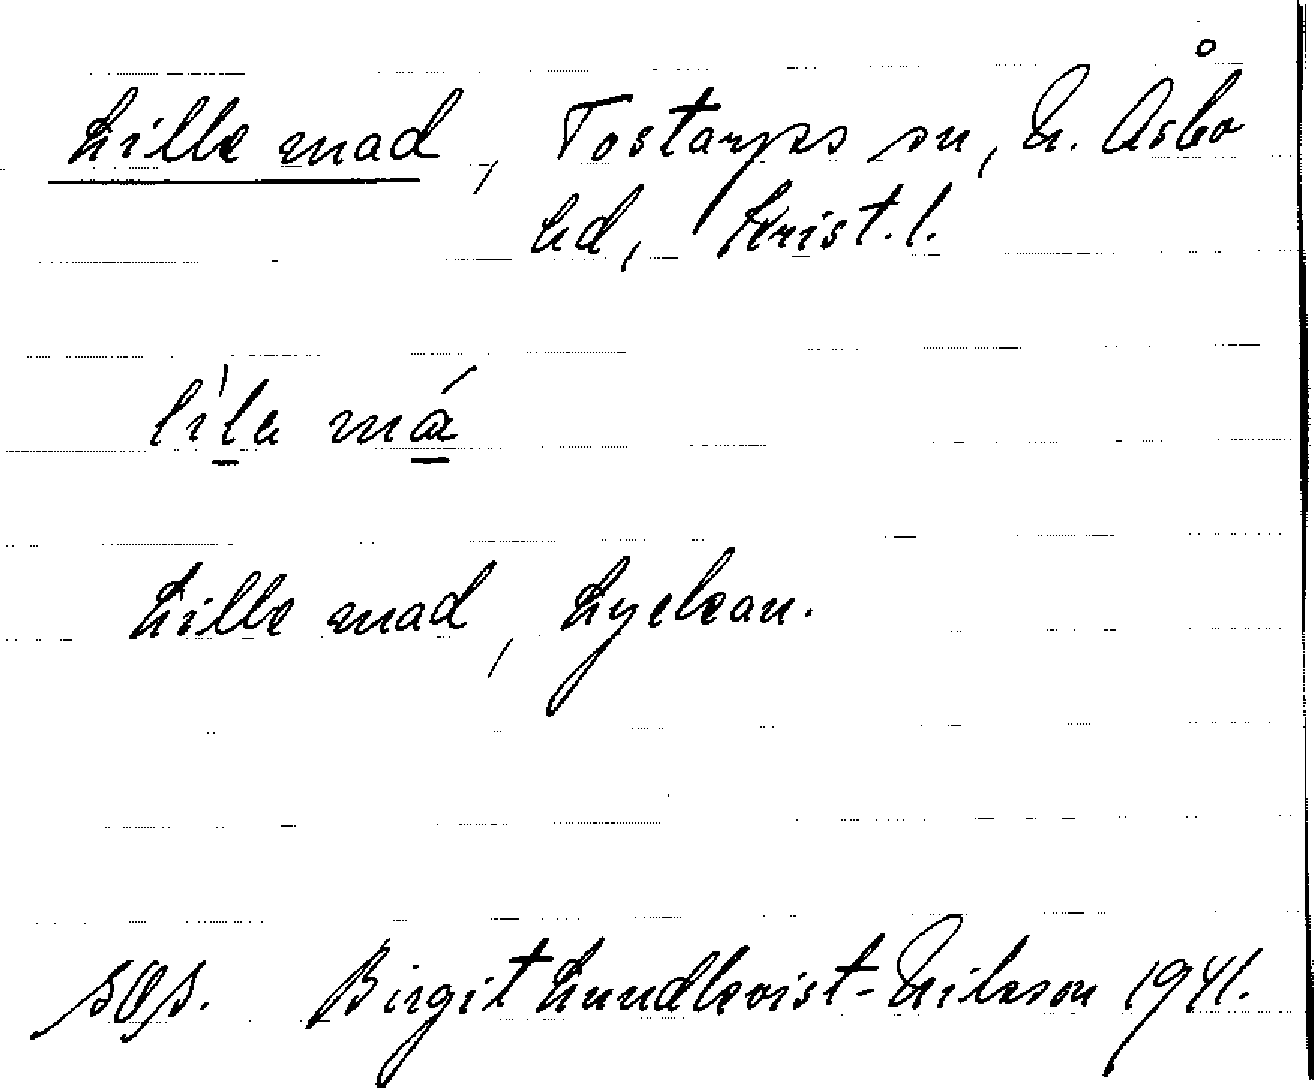 Lille mad, Tostarps sn, N. Åsbo
hd, Krist. l.
lìla má
Lille mad, Lyckan.
Birgit Lundkvist-Nilsson 1941.